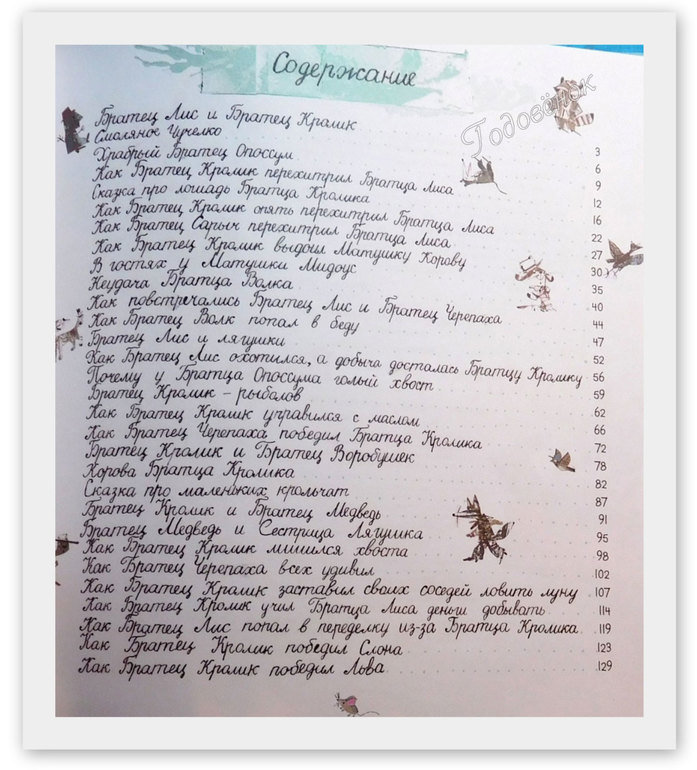 Содержание
Годовёнок
Братец Лис и Братец Кролик 3
Смоляное Чучелко 6
Храбрый Братец Опоссум 9
Как Братец Кролик перехитрил Братца Лиса 12
Сказка про лошадь Братца Кролика 16
Как Братец Кролик опять перехитрил Братца Лиса 22
Как Братец Сарыч перехитрил Братца Лиса 27
Как Братец Кролик выдоил Матушку Корову 30
В гостях у Матушки Мидоус 35
Неудача Братца Волка 40
Как повстречались Братец Лис и Братец Черепаха 44
Как Братец Волк попал в беду 47
Братец Лис и лягушки 52
Как Братец Лис охотился, а добыча досталась Братцу Кролику 56
Почему у Братца Опоссума голый хвост 59
Братец Кролик - рыболов 62
Как Братец Кролик управился с маслом 66
Как Братец Черепаха победил Братца Кролика 72
Братец Кролик и Братец Воробушек 78
Корова Братца Кролика 82
Сказка про маленьких крольчат 87
Братец Кролик и Братец Медведь 91
Братец Медведь и Сестрица Лягушка 95
Как Братец Кролик лишился хвоста 98
Как Братец Черепаха всех удивил 102
Как Братец Кролик заставил своих соседей ловить луну 107
Как Братец Кролик учил Братца Лиса деньги добывать 114
Как Братец Лис попал в переделку из-за Братца Кролика 119
Как Братец Кролик победил Слона 123
Как Братец Кролик победил Льва 129